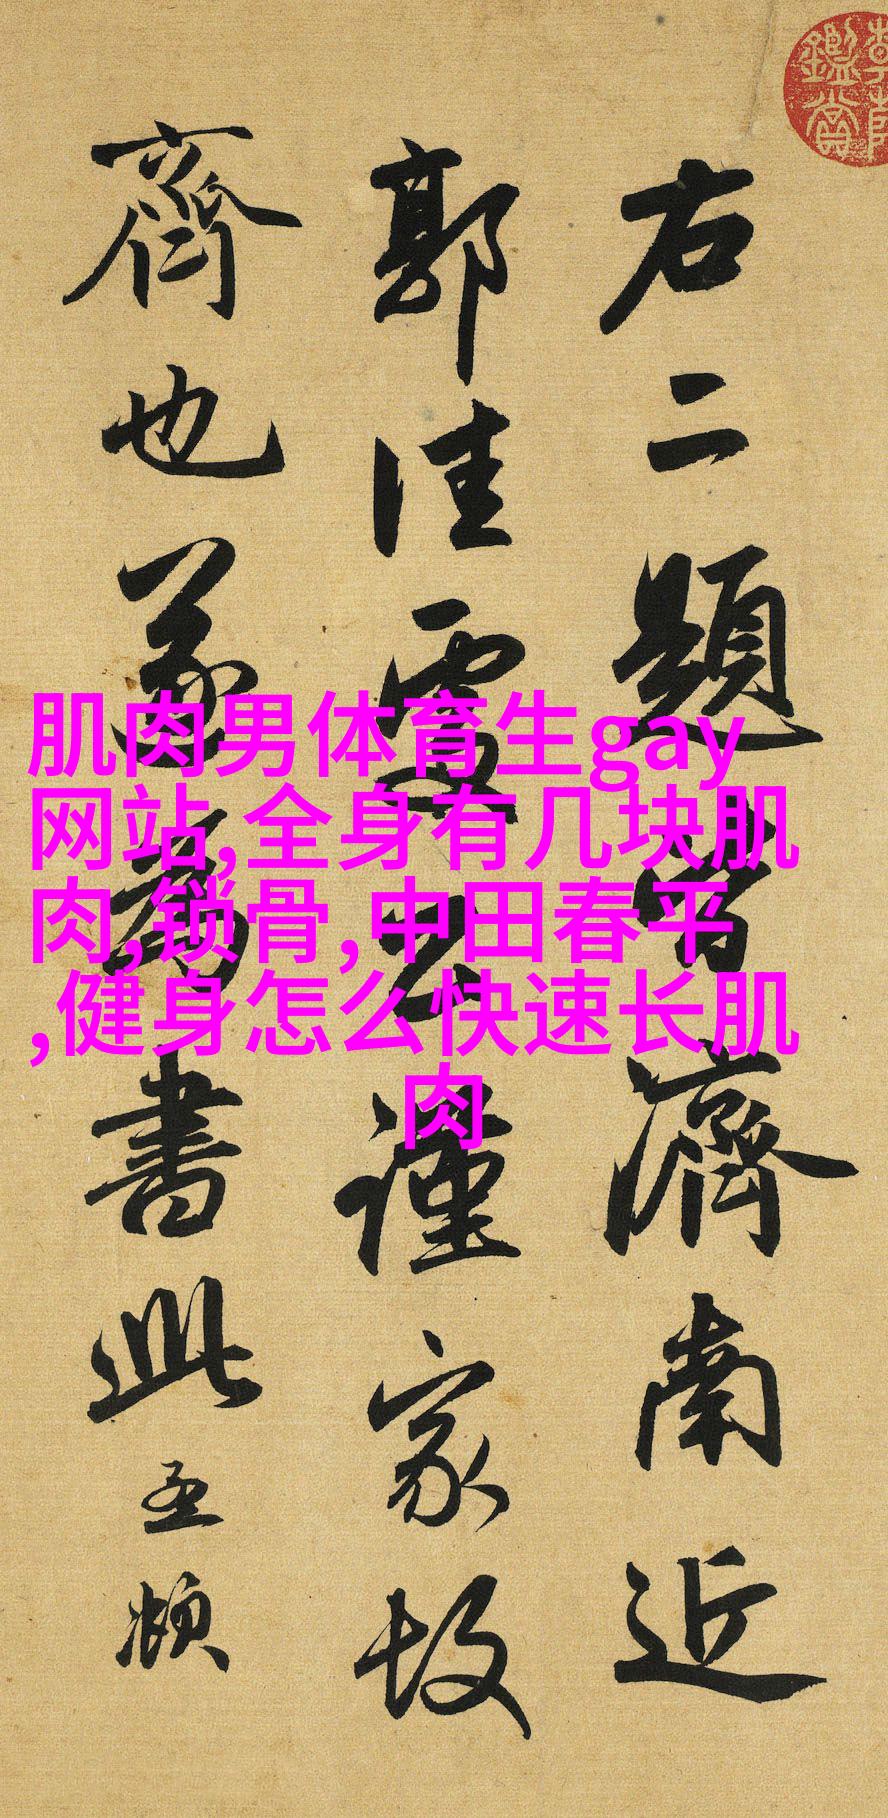 肌肉男体育生gay
网站,全身有几块肌
肉,锁骨,中田春平
,健身怎么快速长肌
肉
右二題皆濟南近
郭佳處公謹家故
齊也遂為書此孟頫
鑑賞